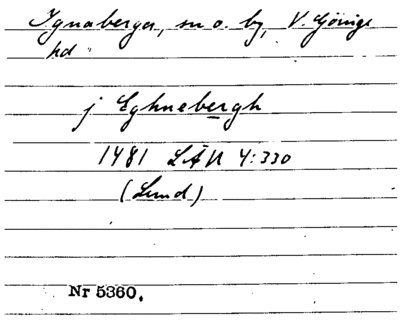 Ignaberga, sn o. by, V. Göinge
hd
j Eghnebergh
1481 LÄU 4:330
(Lund)
Nr 5360.